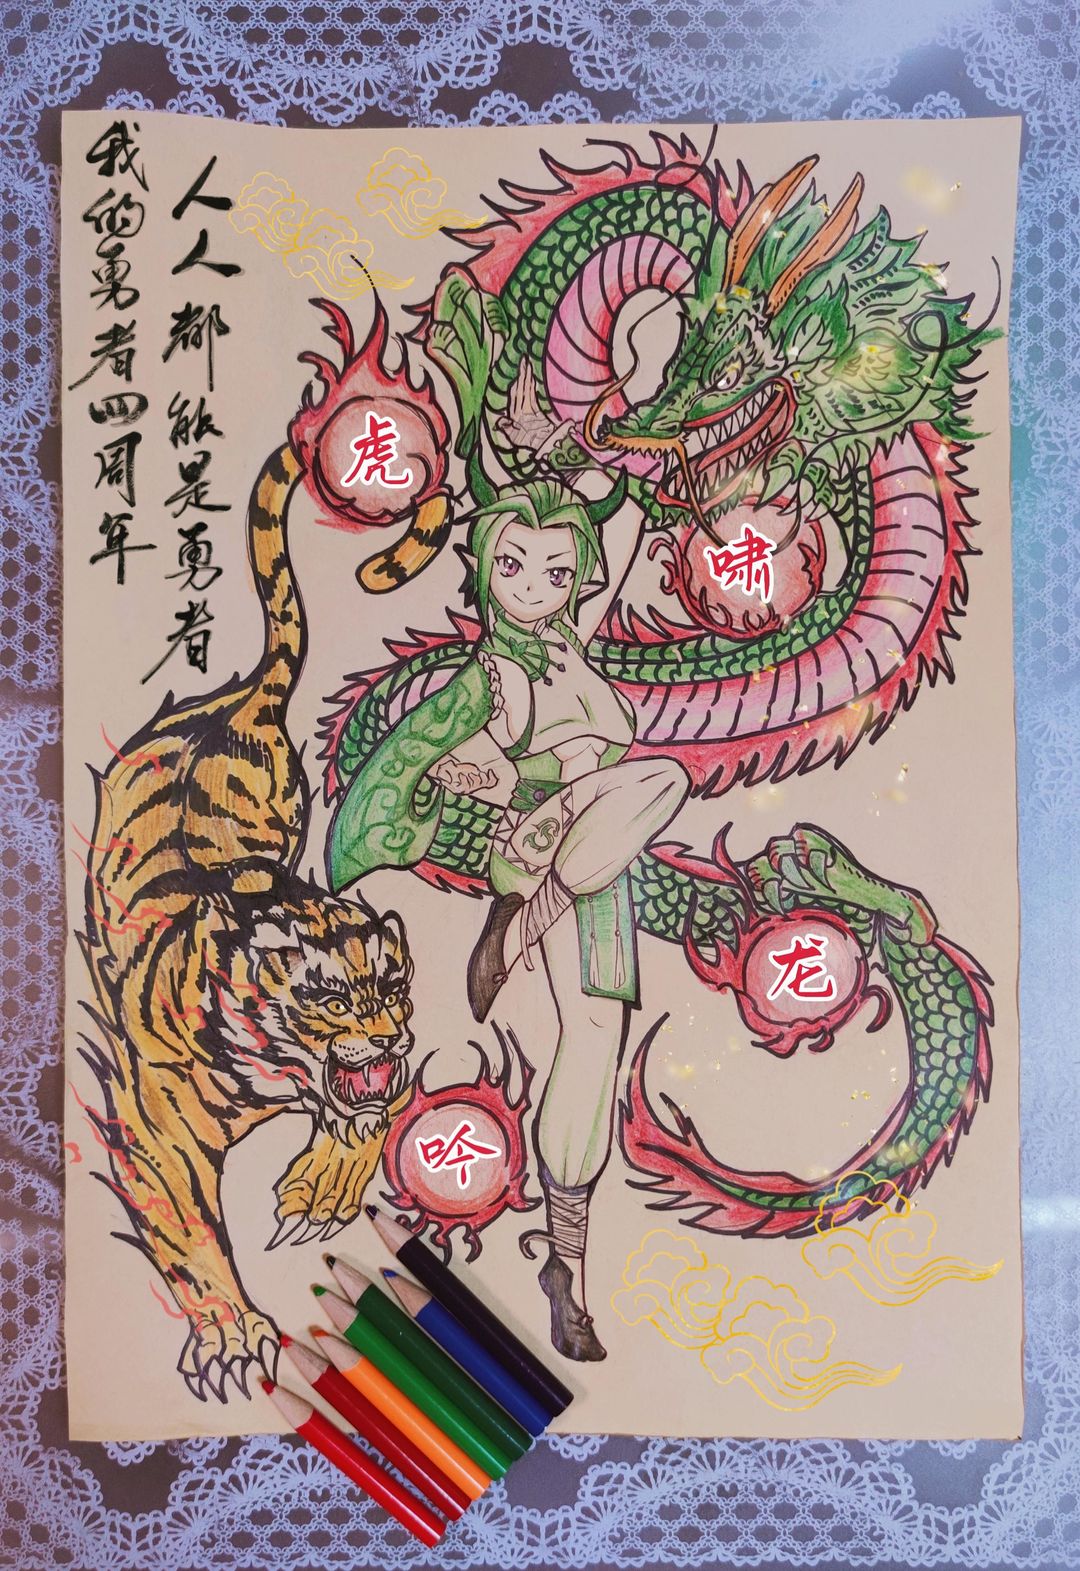 我的勇者四周年
人人都能是勇者
虎
啸
龙
吟